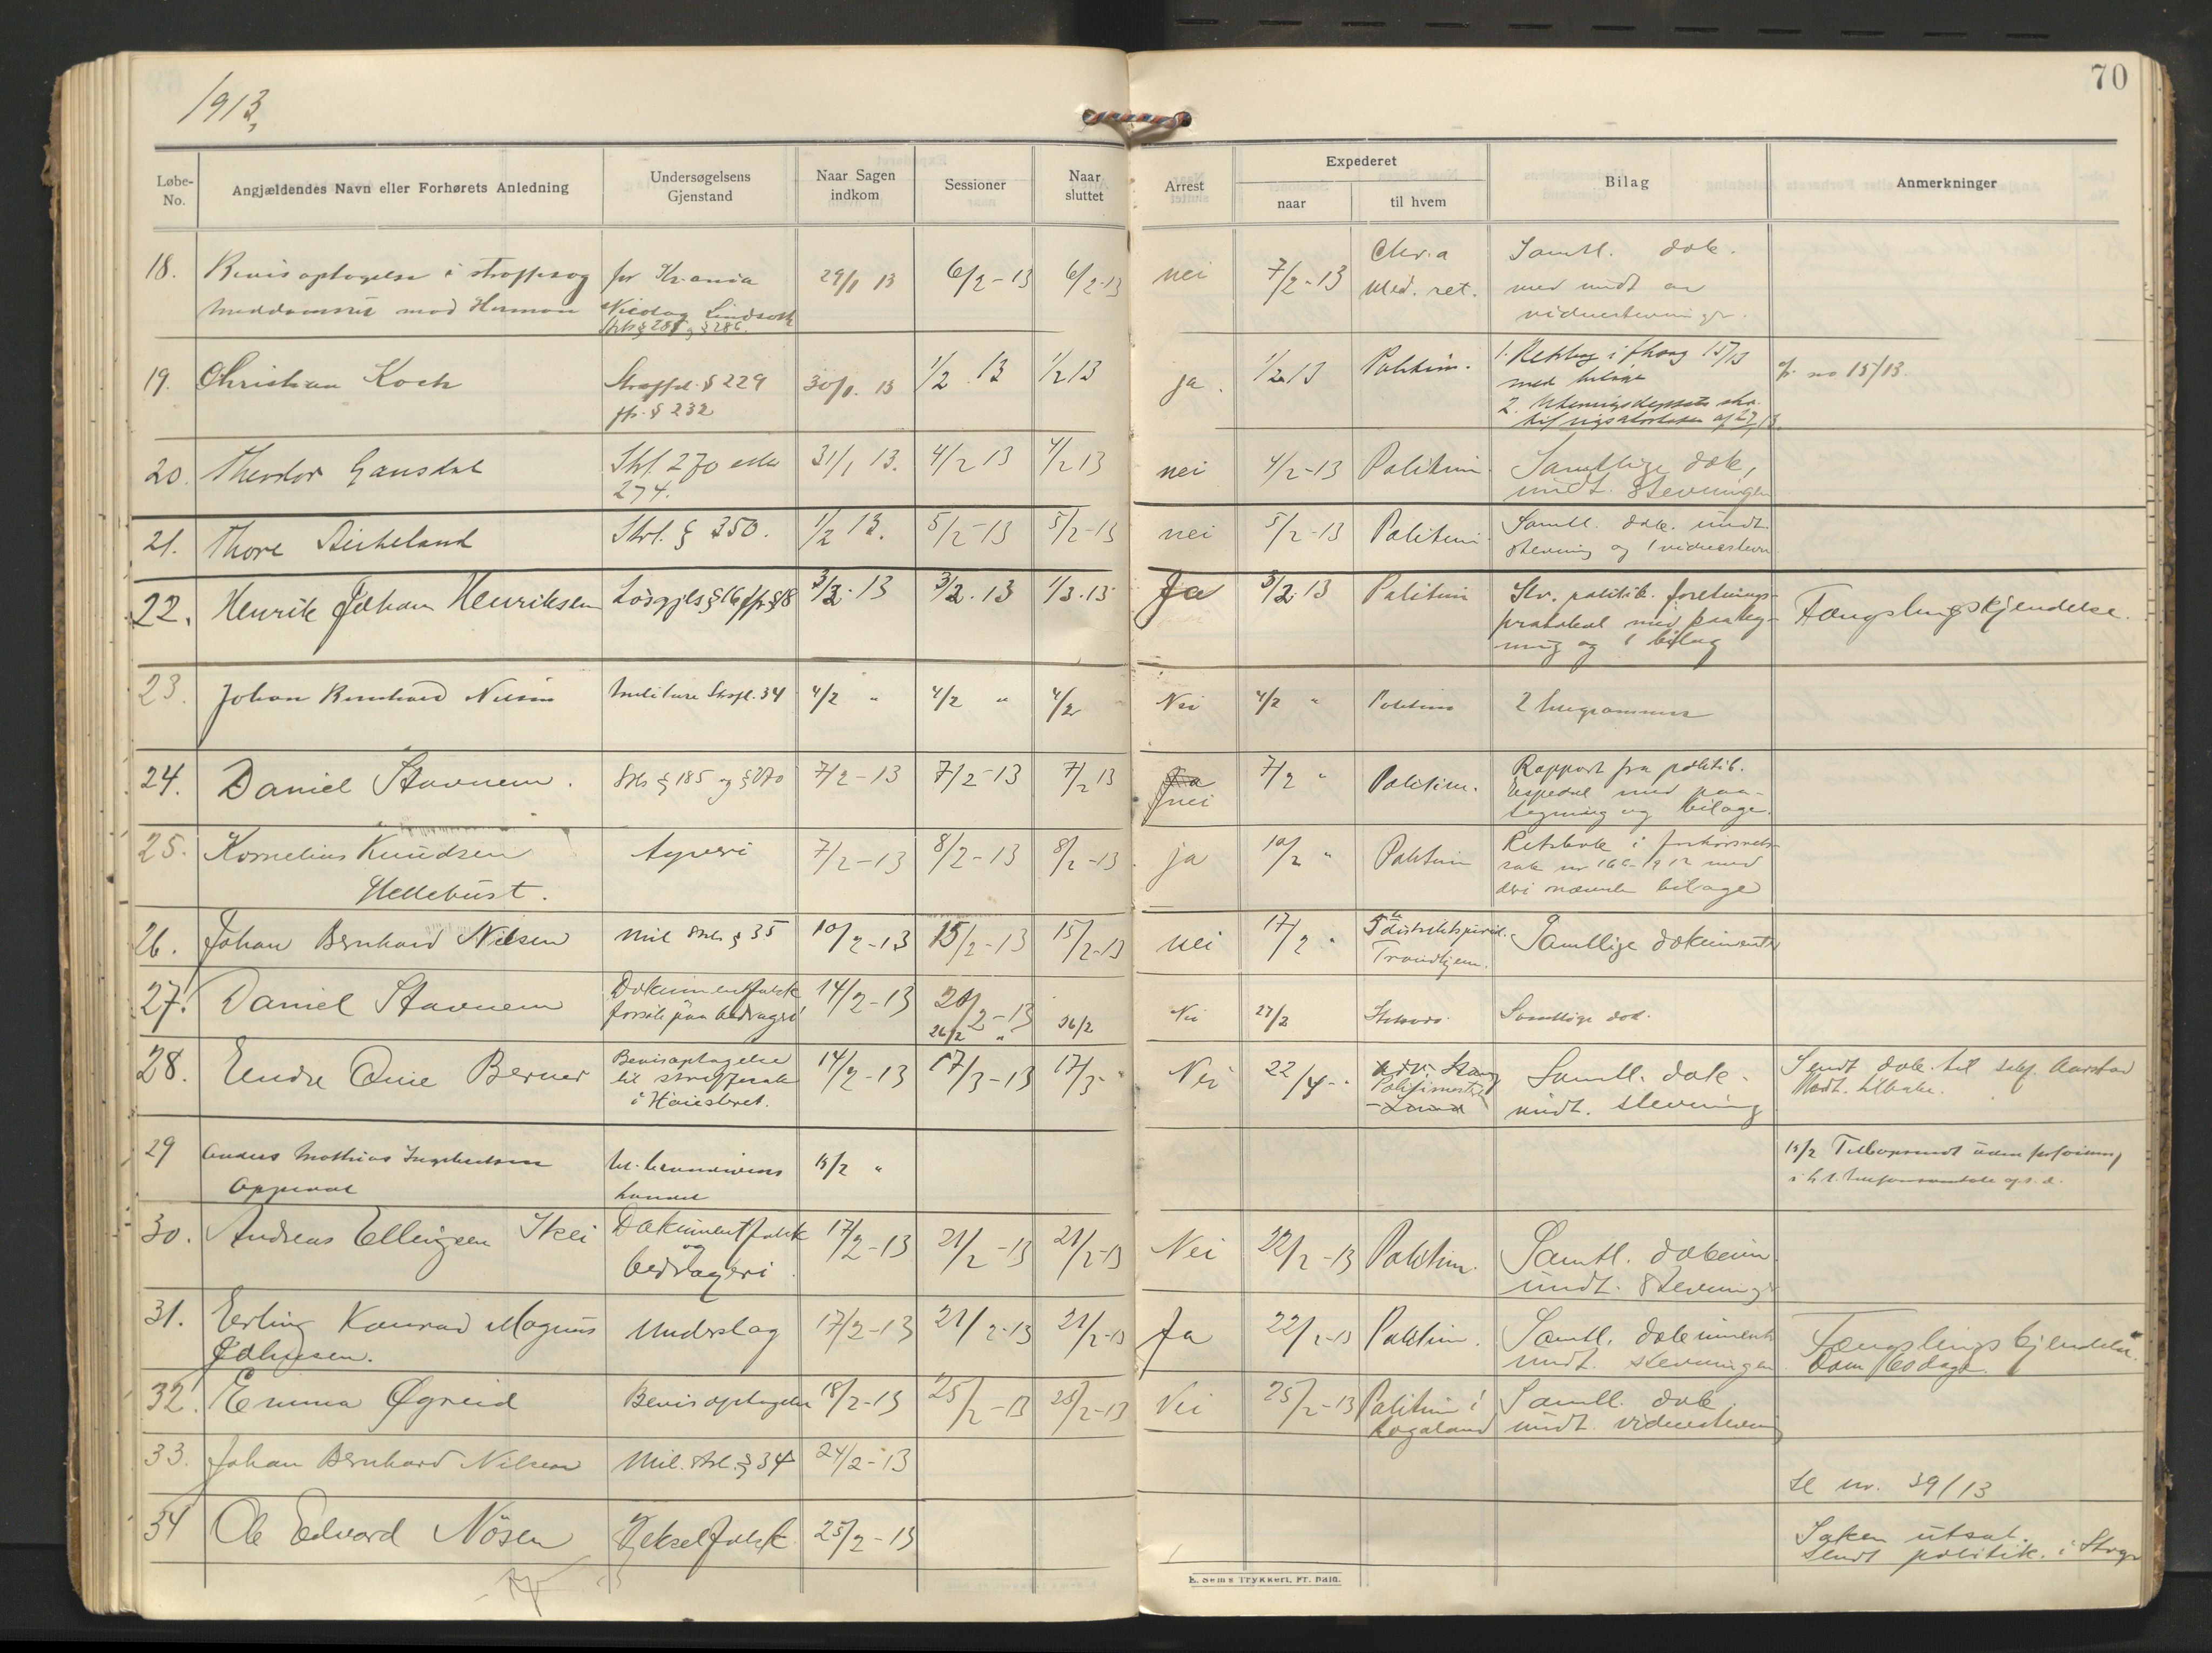 1913.
70
Løbe-No.
Angjældendes Navn eller Forhørets Anledning
Undersøgelsens Gjenstand
Naar Sagen indkom
Sessioner
Naar sluttet
Arrest
Expederet
naar
til hvem
Bilag
Anmerkninger
18. Bevisoptagelse i straffesag for Kr.ania 29/1 13 6/2-13 6/2-13 nei 7/2-13 Chr.a Samtl. dok.
meddomsret mod Herman Nicolay Med. ret. med undt av
Strl § 285 § 286. vidnestevninger.
19. Christian Koch Straffel. § 229 30/1. 13 1/2 13 1/2 13 ja. 1/2 13 Politim. 1. Retsbog i 15/13 no 15/13.
§ 232 med bilage
2.
20. Theodor Gausdal Strl. 270 eller 31/1 13. 4/2 13 4/2 13 nei 4/2-13 Politim. Samtlige dok,
274. undt. stevningen
21. Thore Birkeland Strl. § 350. 1/2 13. 5/2-13 5/2-13 nei 5/2-13 Politim Samtl. dok. undt.
stevning og 1 vidnestevn
22. Henrik Johan Henriksen Løsgjls § 16 jfr § 18 3/2.13 3/2.13 1/3.13 Ja 3/2.13 Politim Skr. politik. foretnings- Fængslingskjendelse.
protokol med paateg-
ning og 1 bilag
23. Johan Bernhard Nilsen militære Strfl. 34 4/2 " 4/2 " 4/2 Nei 4/2 " Politim 2 telegrammer
24. Daniel Stavnem. Strls § 185 og § 270 7/2-13 7/2-13 7/2 13 Ja nei 7/2 " Politim. Rapport fra politib.
Espedal med paa-
tegning og bilage.
25. Kornelius Knudsen Tyveri 7/2-13 8/2-13 8/2-13. ja 10/2 " Politim Retsbok i forhørsrets-
Hellebust. sak nr 1912 med
deri nævnte bilage
26. Johan Bernhard Nilsen Mil Strl § 35 10/2-13 15/2-13 15/2-13 nei 17/2 " 5te Samtlige dokumenter
Trondhjem.
27. Daniel Stavnem Dokumentfalsk 14/2-13 20/2-13 26/2 Nei 27/2 Samtlige dok.
forsøk paa bedrageri 26/2 "
28. Endre Berner Bevisoptagelse 14/2-13 17/3-13 17/3-" Nei 22/4-" Adv. Samtl. dok. Sendt dok. til Aarstad
til straffesak Politimester undt. stevning Modt. tilbake.
i Høiesteret.
29 Anders Mathias Ingebretsen ul. brændevins 15/2 " 15/2 Tilbagesendt uden forføining
Oppedal handel i h.t. telefonsamtale af s.d.
30. Andreas Ellingsen Skei Dokumentfalsk 17/2-13 21/2-13 21/2-13 Nei 22/2-13 Politim. Samtl. dokum.
og bedrageri undt. stevninger
31. Erling Konrad Magnus Underslag 17/2-13 21/2-13 21/2-13 Ja 22/2-13 Politim. Samtl. dokumenter Fængslingskjendelse.
Johnsen. undt. stevningen.
32. Emma Øgreid Bevisoptagelse 18/2-13 25/2-13 25/2-13 Nei 25/2-13 Politim i Samtl. dok.
Rogaland undt. vidnestevning
33. Johan Bernhard Nilsen Mil. strl. § 34 24/2-13
se nr. 39/13
34 Ole Edvard Nösen Vekselfalsk 25/2-13 Saken utsat.
Sendt politik. i
E. Sems Trykkeri, Fr.hald.